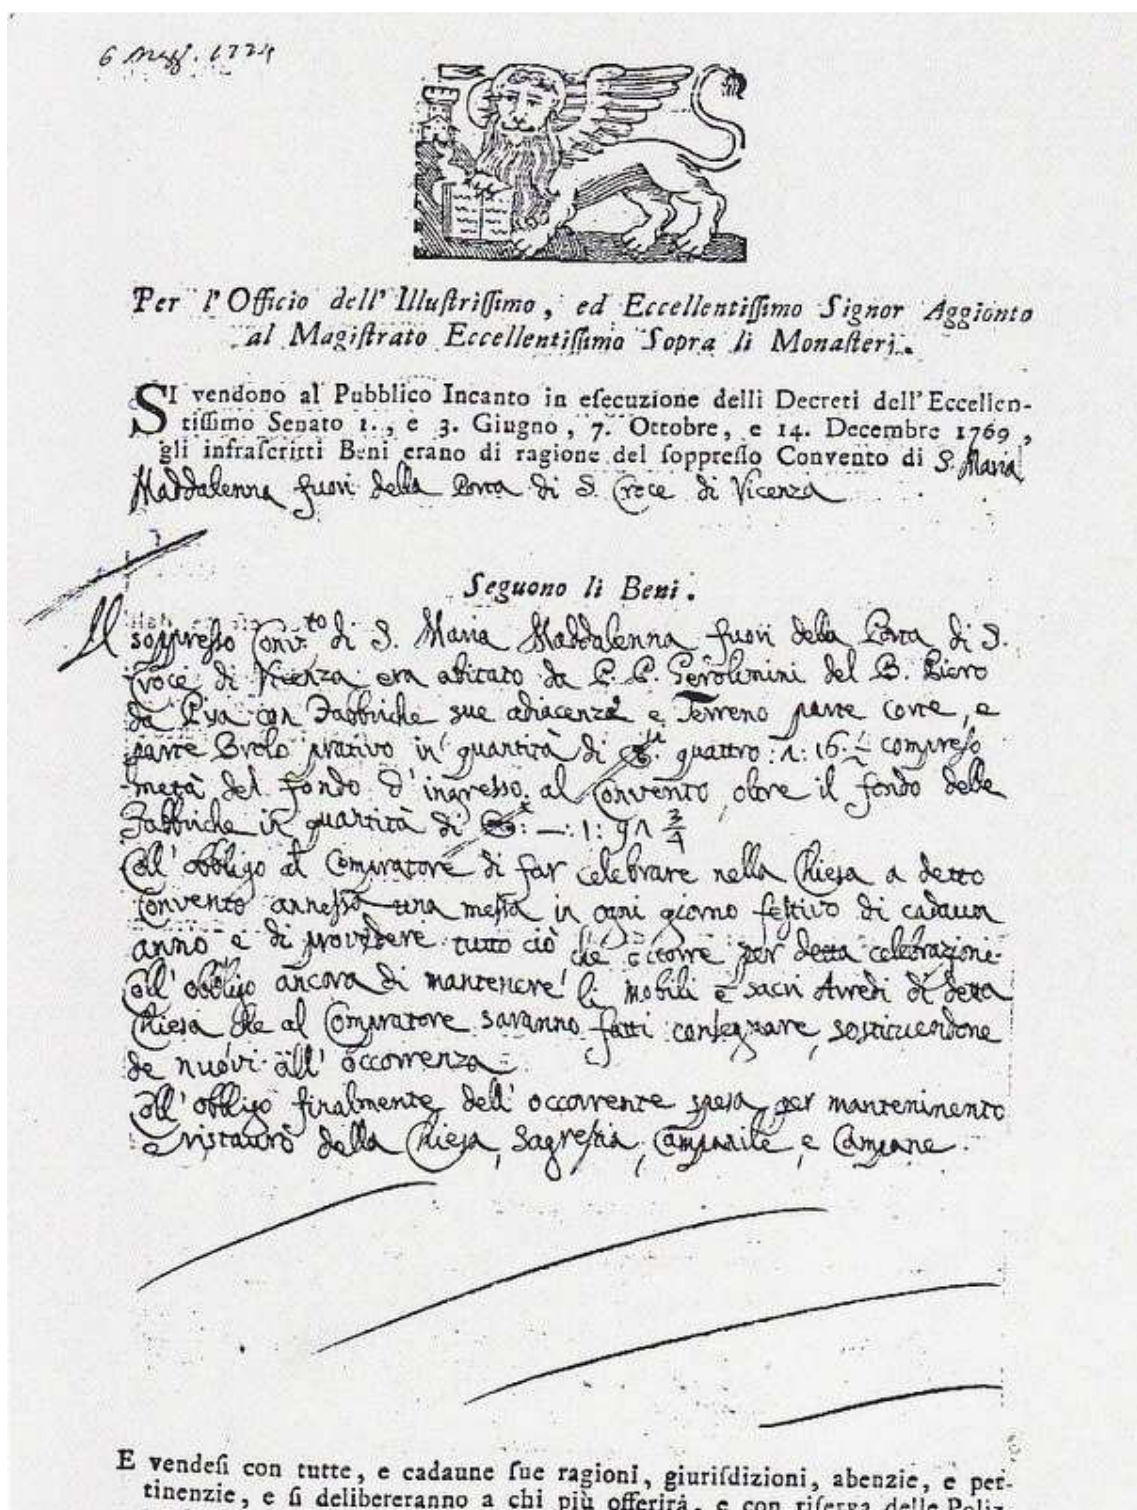 6 Magg. 1774
Per l'Officio dell'Illuſtriſſimo, ed Eccellentiſſimo Signor Aggionto
al Magiſtrato Eccellentiſſimo Sopra li Monaſterj.
SI vendono al Pubblico Incanto in eſecuzione delli Decreti dell'Eccellen-
tiſſimo Senato 1., e 3. Giugno, 7. Ottobre, e 14. Decembre 1769,
gli infraſcritti Beni erano di ragione del ſoppreſſo Convento di S. Maria
Maddalenna fuori della Porta di S. Croce di Vicenza
Seguono li Beni.
Il soppresso Conv.to di S. Maria Maddalenna fuori della Porta di S.
Croce di Vicenza era abitato da P. P. Gerolimini del B. Piero
da Pisa con Fabbriche sue adiacenze e Terreno parte corte, e
parte Brolo prativo in quantità di quattro : 1 : 16 compreso
metà del fondo d'ingresso al Convento, oltre il fondo delle
Fabbriche in quantità di : — : 1 : 91 3/4
Coll' obbligo al Compratore di far celebrare nella Chiesa a detto
Convento annessa una messa in ogni giorno festivo di cadaun
anno e di provedere tutto ciò che occorre per detta celebrazione.
Coll' obbligo ancora di mantenere li mobili e sacri Arredi di detta
Chiesa che al Compratore saranno fatti consegnare, sostituendone
de nuovi all' occorrenza.
Coll' obbligo finalmente dell' occorrente spesa per mantenimento
e ristauro della Chiesa, Sagrestia, Campanile, e Campane.
E vendeſi con tutte, e cadaune ſue ragioni, giuriſdizioni, abenzie, e per-
tinenzie, e ſi delibereranno a chi più offerirà, e con riſerva delle Poliz-